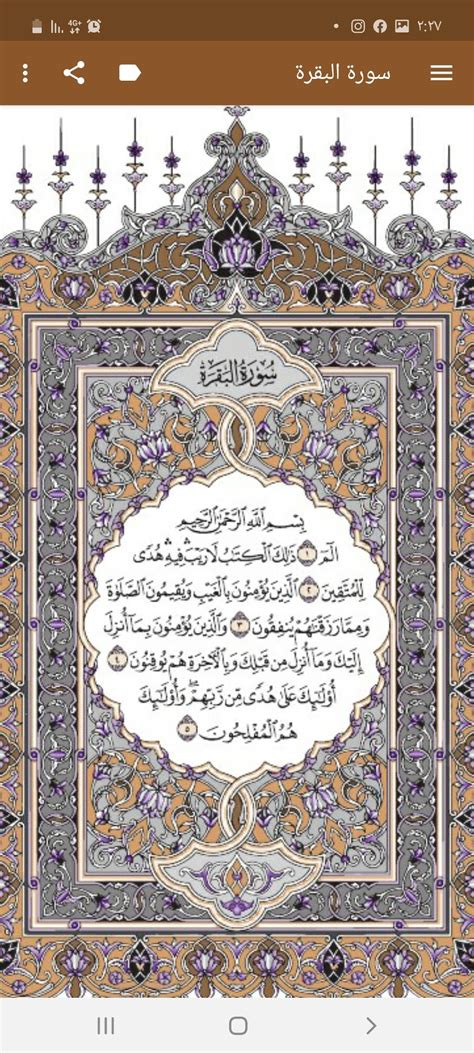 ٢:٢٧
4G+
سورة البقرة
سُورَةُ البَقَرَةِ
بِسْمِ اللَّهِ الرَّحْمَٰنِ الرَّحِيمِ
الٓمٓ ١ ذَٰلِكَ الْكِتَٰبُ لَا رَيْبَ ۛ فِيهِ ۛ هُدًى
لِّلْمُتَّقِينَ ٢ الَّذِينَ يُؤْمِنُونَ بِالْغَيْبِ وَيُقِيمُونَ الصَّلَوٰةَ
وَمِمَّا رَزَقْنَٰهُمْ يُنفِقُونَ ٣ وَالَّذِينَ يُؤْمِنُونَ بِمَا أُنزِلَ
إِلَيْكَ وَمَا أُنزِلَ مِن قَبْلِكَ وَبِالْآخِرَةِ هُمْ يُوقِنُونَ ٤
أُو۟لَٰٓئِكَ عَلَىٰ هُدًى مِّن رَّبِّهِمْ ۖ وَأُو۟لَٰٓئِكَ
هُمُ الْمُفْلِحُونَ ٥